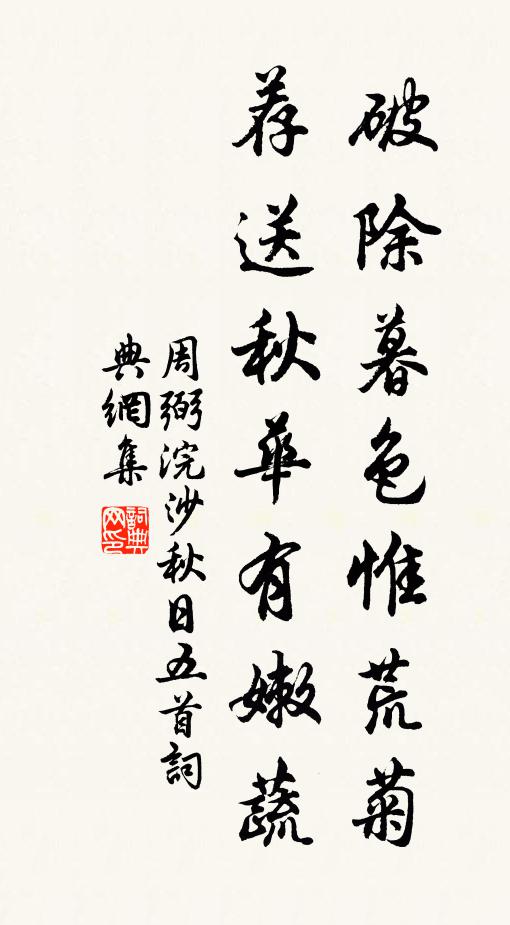 破除暮色惟荒菊
荐送秋華有嫩蔬
周弼浣沙秋日五首詞
典網集
詞典网印